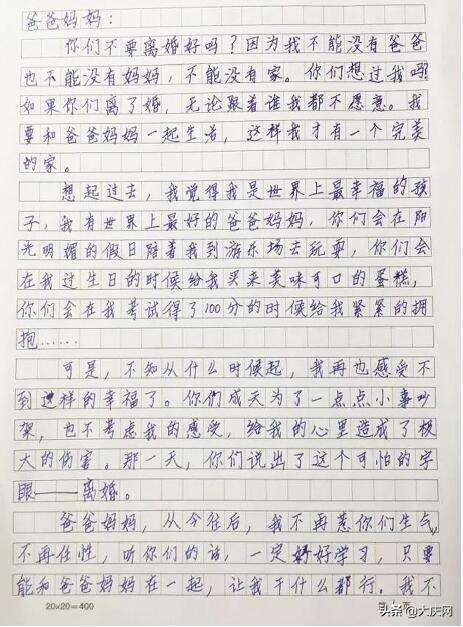 爸爸妈妈：
你们不要离婚好吗？因为我不能没有爸爸
也不能没有妈妈，不能没有家。你们想过我吗
如果你们离了婚，无论跟着谁我都不愿意。我
要和爸爸妈妈一起生活，这样我才有一个完美
的家。
想起过去，我觉得我是世界上最幸福的孩
子，我有世界上最好的爸爸妈妈，你们会在阳
光明媚的假日陪着我到游乐场去玩耍，你们会
在我过生日的时候给我买来美味可口的蛋糕，
你们会在我考试得了100分的时候给我紧紧的拥
抱……
可是，不知从什么时候起，我再也感受不
到这样的幸福了。你们成天为了一点点小事吵
架，也不考虑我的感受，给我的心里造成了极
大的伤害。那一天，你们说出了这个可怕的字
眼——离婚。
爸爸妈妈，从今往后，我不再惹你们生气，
不再任性，听你们的话，一定好好学习，只要
能和爸爸妈妈在一起，让我干什么都行。我不
20×20=400
头条 @大庆网